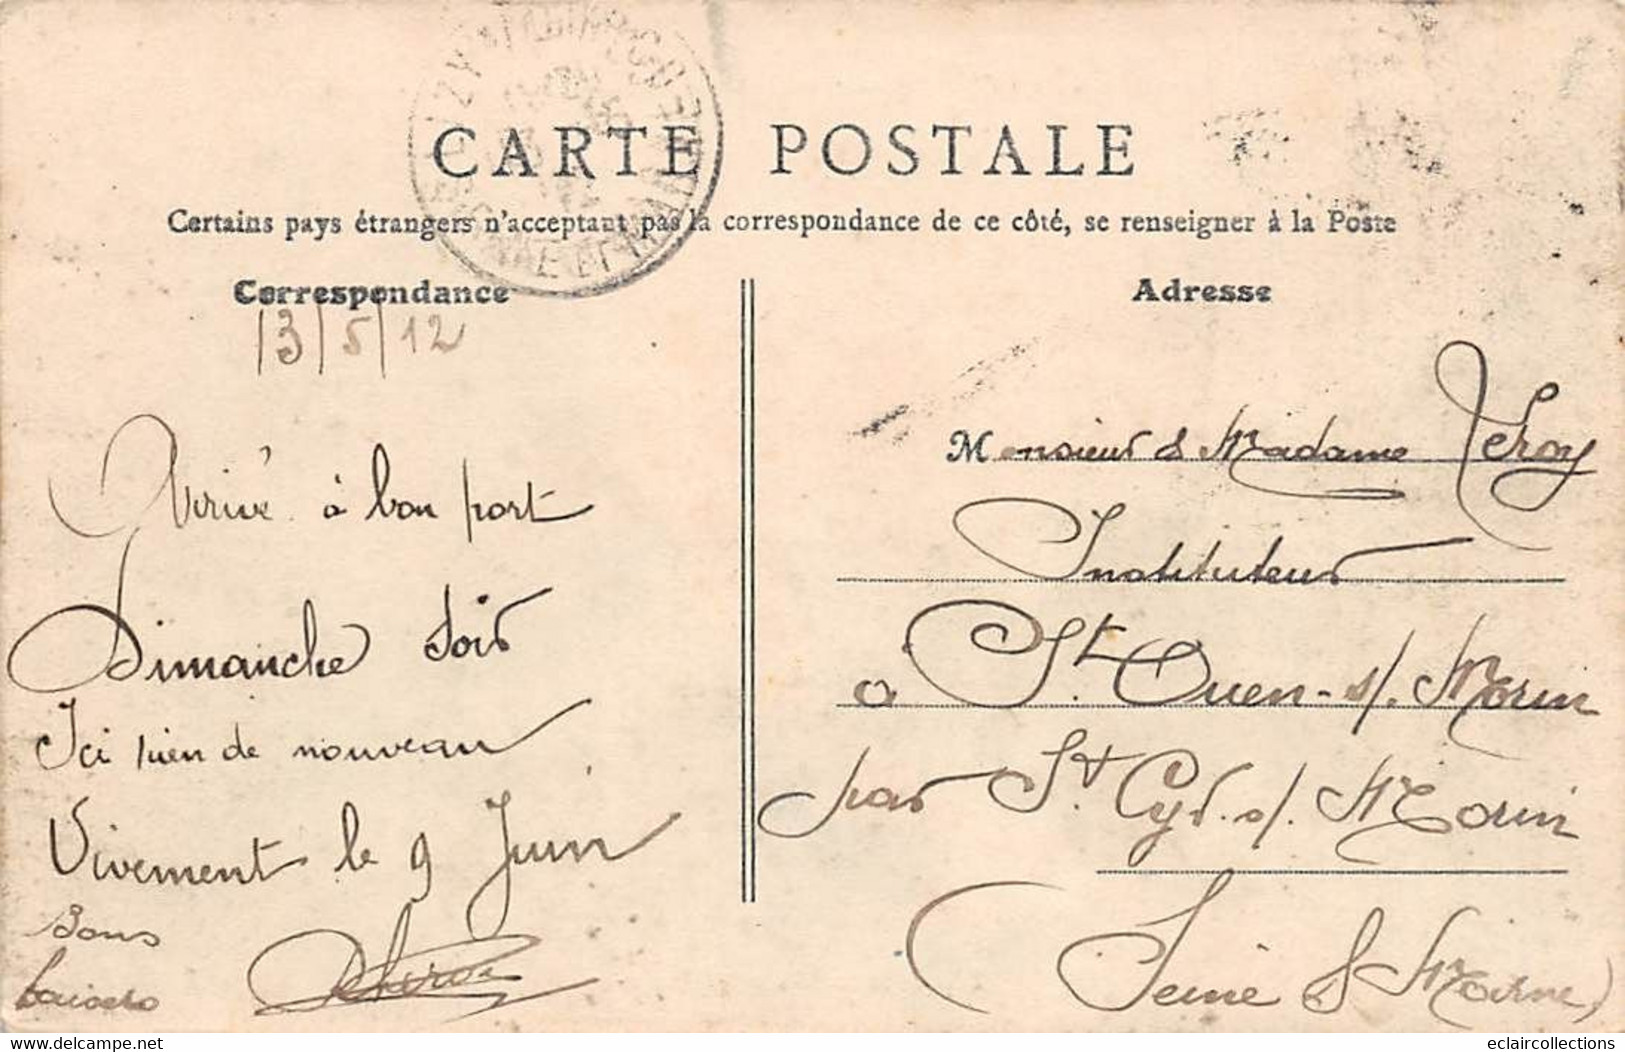 CARTE POSTALE
Certains pays étrangers n'acceptant pas la correspondance de ce côté, se renseigner à la Poste
Correspondance
13/5/12
Arrivé à bon port
Dimanche soir
Ici rien de nouveau
Vivement le 9 Juin
Bons
baisers
Adresse
Monsieur & Madame Leroy
Instituteur
à St. Ouen-s/. Morin
par St. Cyr. s/. Morin
(Seine & Marne)
eclaircollections